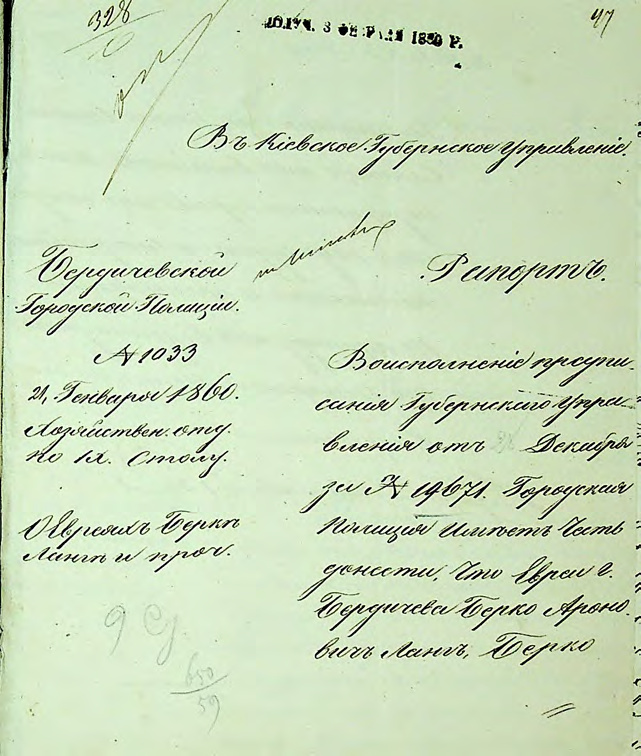 328
47
ПОЛУЧ. 3 ФЕВРАЛЯ 1860 Г.
Въ Кіевское Губернское Управленіе.
Бердичевской
Городской Полиціи.
№ 1033
21, Генваря 1860.
Хозяйствен. отд.
по 1х. Столу.
О Евреяхъ Беркѣ
Лангѣ и проч.
650
59
Рапортъ.
Воисполненіе предпи-
санія Губернскаго Упра-
вленія отъ Декабря
за № 19671. Городская
Полиція имѣетъ честь
донести, что Евреи г.
Бердичева Берко Ароно-
вичъ Лангъ, Берко